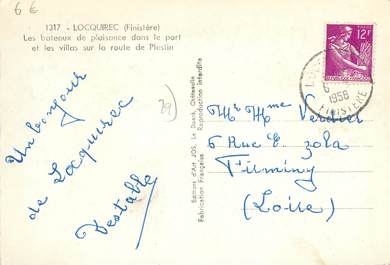 6 €
1317 - LOCQUIREC (Finistère)
Les bateaux de plaisance dans le port
et les villas sur la route de Plestin
12F
1958
FINISTERE
29)
Un bonjour
de Locquirec
Destable
Editions d'Art JOS, Le Doaré, Châteaulin
Fabrication Française Reproduction interdite
Mr Mme Verdier
6 Rue E. Zola
Firminy
(Loire)